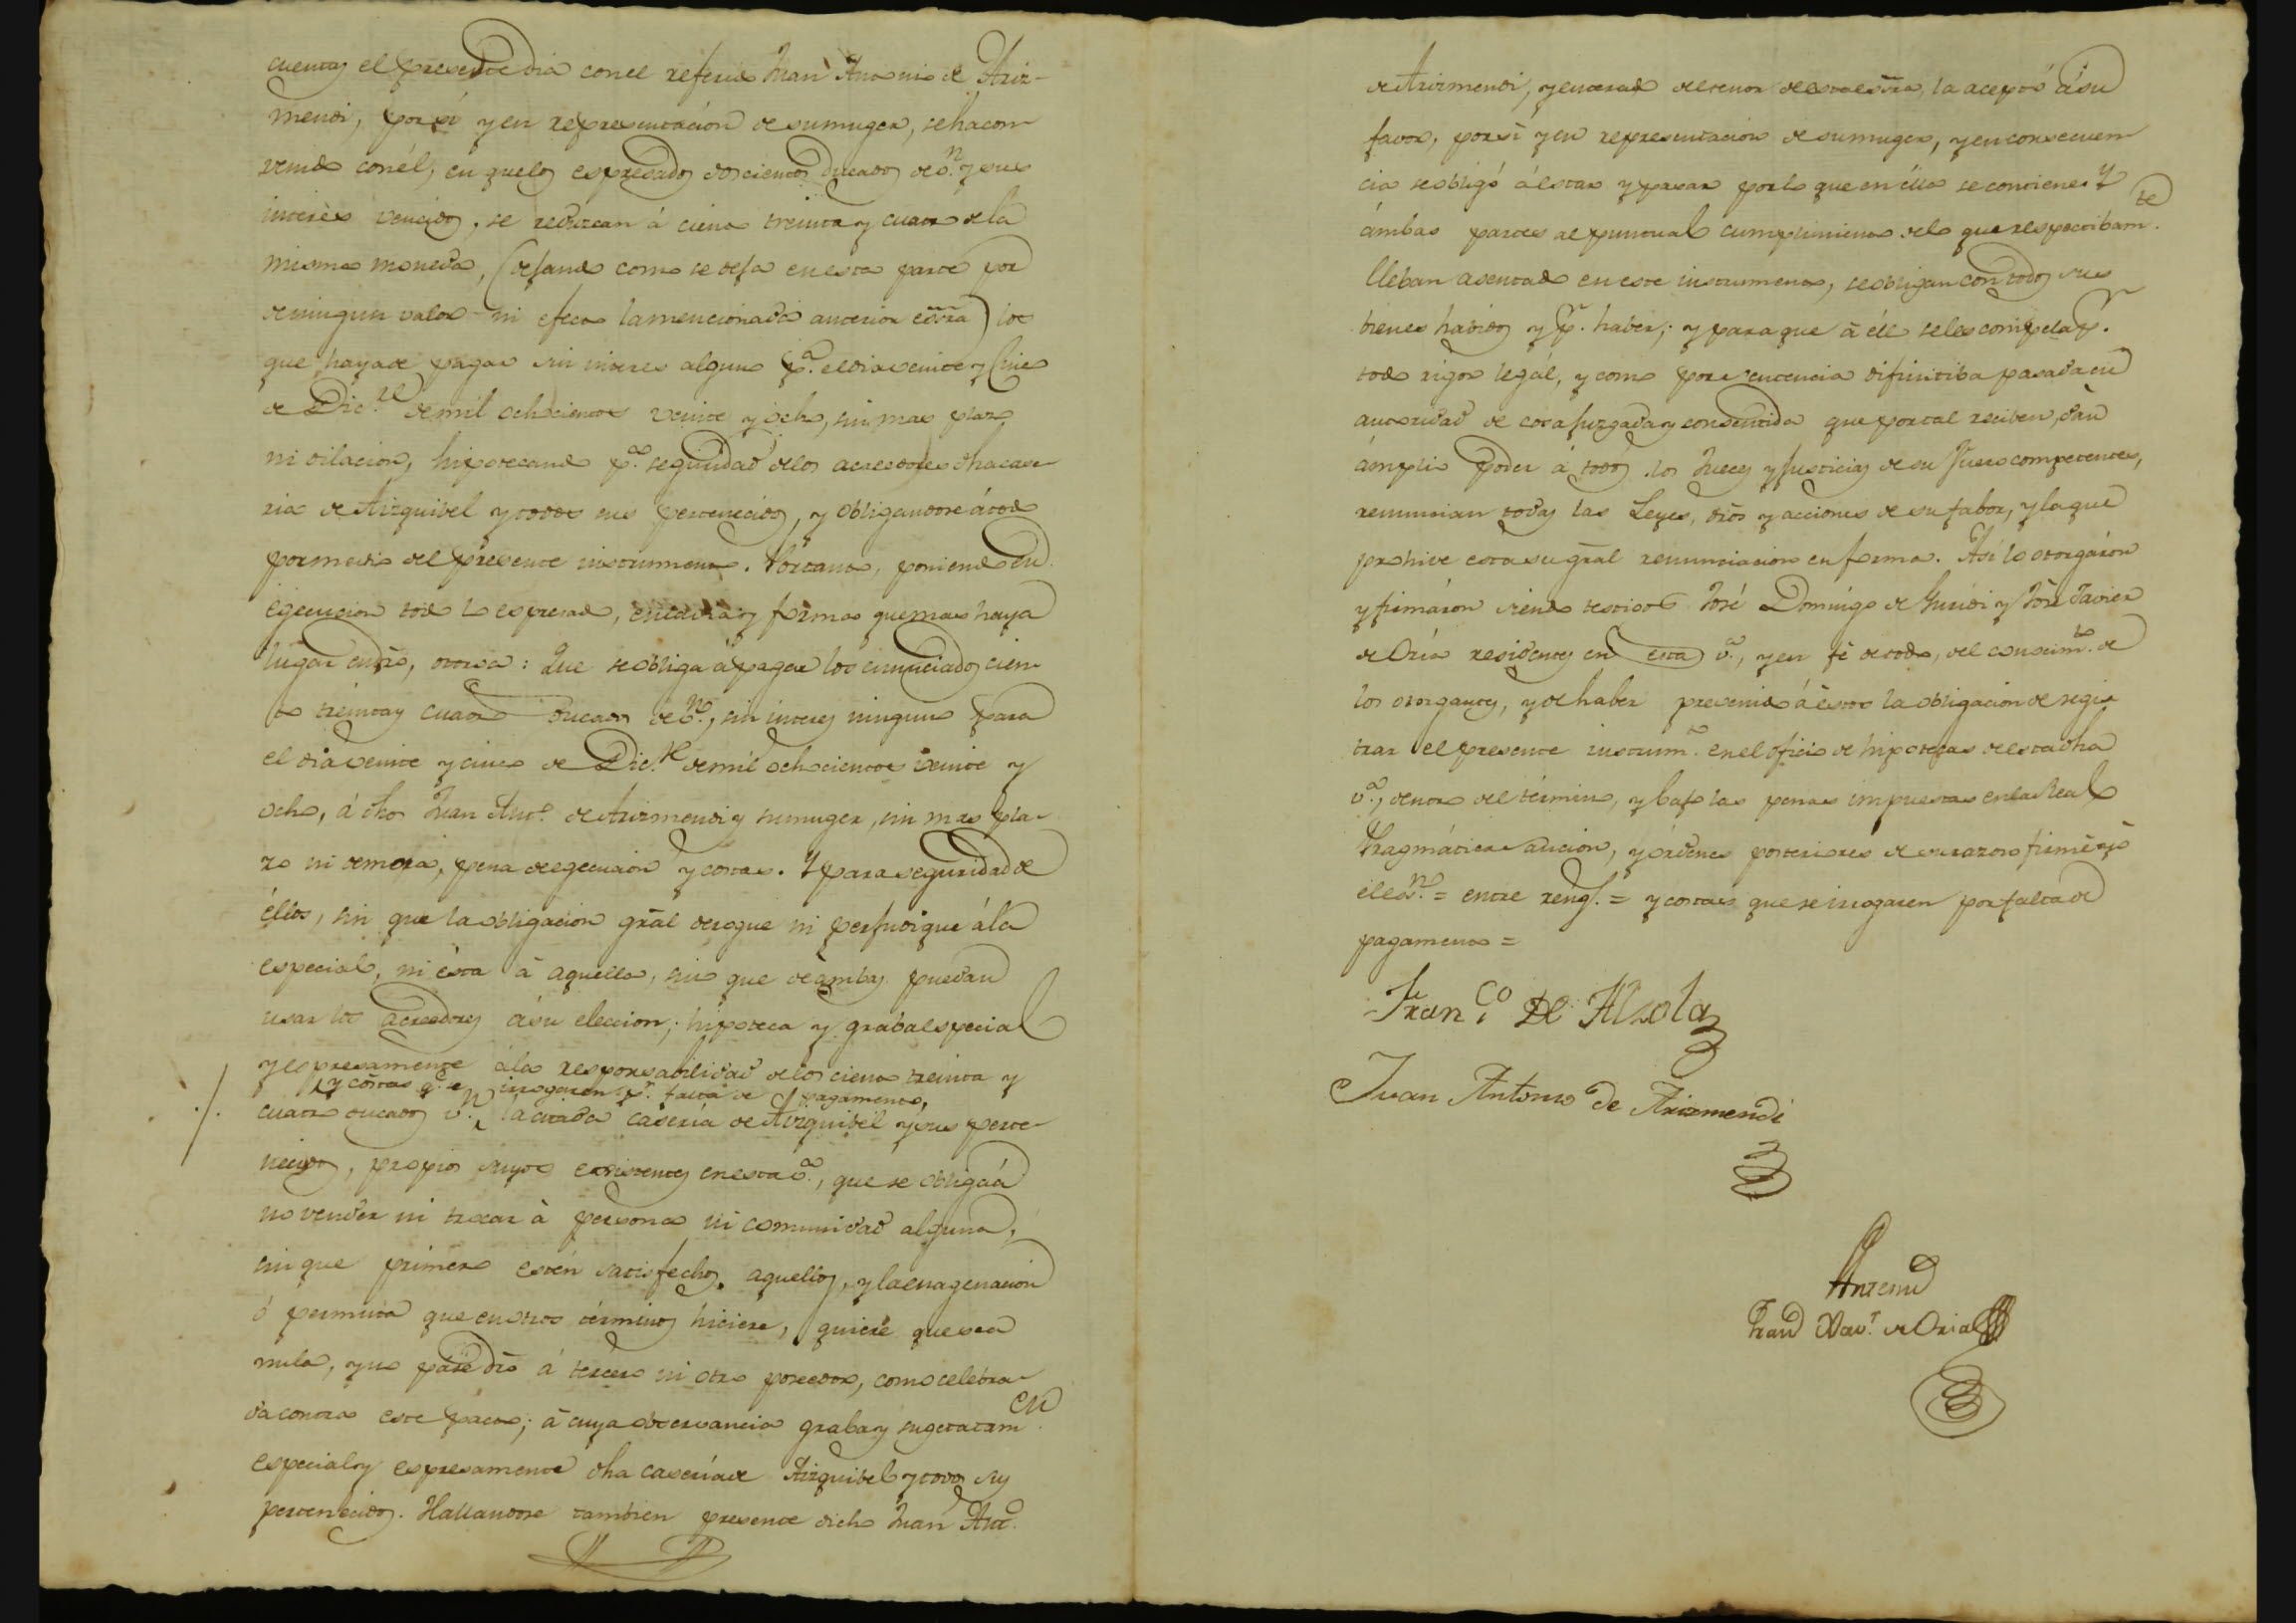 cuentas el presente dia con el referido Juan Antonio de Ariz-
mendi, por sí y en representación de su muger, se ha com
venido con él, en que los espresados doscientos ducados de v.n y sus
interés vencidos, se reduzcan á ciento treinta y cuatro de la
misma moneda, (dejando como se deja en esta parte por
de ningun valor ni efecto la mencionada anterior esc̃ra) los
que haya de pagar sin interes alguno p.a el dia veinte y cinco
de Dic.re de mil ochocientos veinte y ocho, sin mas plazo
ni dilacion, hipotecando p.a seguridad de los acreedores dha case-
ria de Aizquibel y todos sus pertenecidos, y obligandose á todo
por medio del presente instrumento. Portanto, poniendo en
egecucion todo lo espresado, en la via y forma que mas haya
lugar en dr̃o, otorga: Que se obliga á pagar los enunciados cien-
to treinta y cuatro ducados de v.n, sin interes ninguno para
el dia veinte y cinco de Dic.re de mil ochocientos veinte y
ocho, á dhos Juan Ant.o de Arizmendi y su muger, sin mas pla-
zo ni demora, pena de egecucion y costas. Y para seguridad de
éllos, sin que la obligacion grãl derogue ni perjudique á la
especial, ni ésta á aquella, sino que de ambas puedan
usar los acreedores á su eleccion; hipoteca y graba especial
y espresamente á la responsabilidad de los ciento treinta y
y costas q.e se irrogaren p.r falta de pagamento,
cuatro ducados v.n la citada casería de Aizquibel y sus perte-
necidos, propios suyos existentes en esta v.a, que se obliga á
no vender ni trocar á persona ni comunidad alguna,
sin que primero estén satisfechos aquellos, y la enagenacion
ó permuta que en otros términos hiciere, quiere que sea
nula, y no pase dr̃o á tercero ni otro poseedor, como celebra-
da contra este pacto; á cuya observancia graba y sugeta tam.en
especial y espresamente dha casería de Aizquibel y todos sus
pertenecidos. Hallandose tambien presente dicho Juan Ant.o
de Arizmendi, y enterado del tenor de esta esc̃ra, la aceptó á su
favor, por sí y en representacion de su muger, y en consecuen
cia se obligó á estar y pasar por lo que en élla se contiene. Y
ámbas partes al puntual cumplimiento de lo que respectibam.te
lleban asentado en este instrumento, se obligan con todos sus
bienes habidos y p.r haber; y para que á éllo se les compela p.r
todo rigor legál, y como por sentencia difinitiba pasada en
autoridad de cosa juzgada y consentida que por tal reciben, dán
ámplio poder á todos los Jueces y Justicias de su fuero competentes,
renuncian todas las Leyes, dr̃os y acciones de su fabor, y la que
prohive esta su grãl renunciacion en forma. Así lo otorgáron
y firmáron siendo testigos José Domingo de Guridi y José Javier
de Oria residentes en esta v.a, y en fé de todo, del conocim.to de
los otorgantes, y de haber prevenido á éstos la obligacion de regis
trar el presente instrum.to en el oficio de hipotecas de esta dha
v.a, dentro del término, y bajo las penas impuestas en la Real
Pragmática sancion, y órdenes posteriores de su razon firmé yo
el es.no = entre reng.s = y costas que se irrogaren por falta de
pagamento =
Fran.co De Alzola
Juan Antonio de Arizmendi
Antemi
Juan Xav.r de Oria